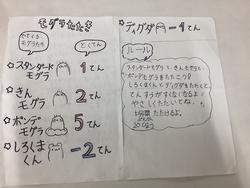 モグラたたき
でてくる
モグラたち
とくてん
☆スタンダード
モグラ 1てん
☆きん
モグラ 2てん
☆ポンデ
モグラ 5てん
☆しろくま
くん -2てん
☆ディグダ -1てん
ルール
スタンダードモグラと、きんモグラと、
ポンデモグラをたたこう!
しろくまくんと ディグダをたたくと
てんすうがすくなくなるよ
やさしくたたいてね。
たたけるよ。